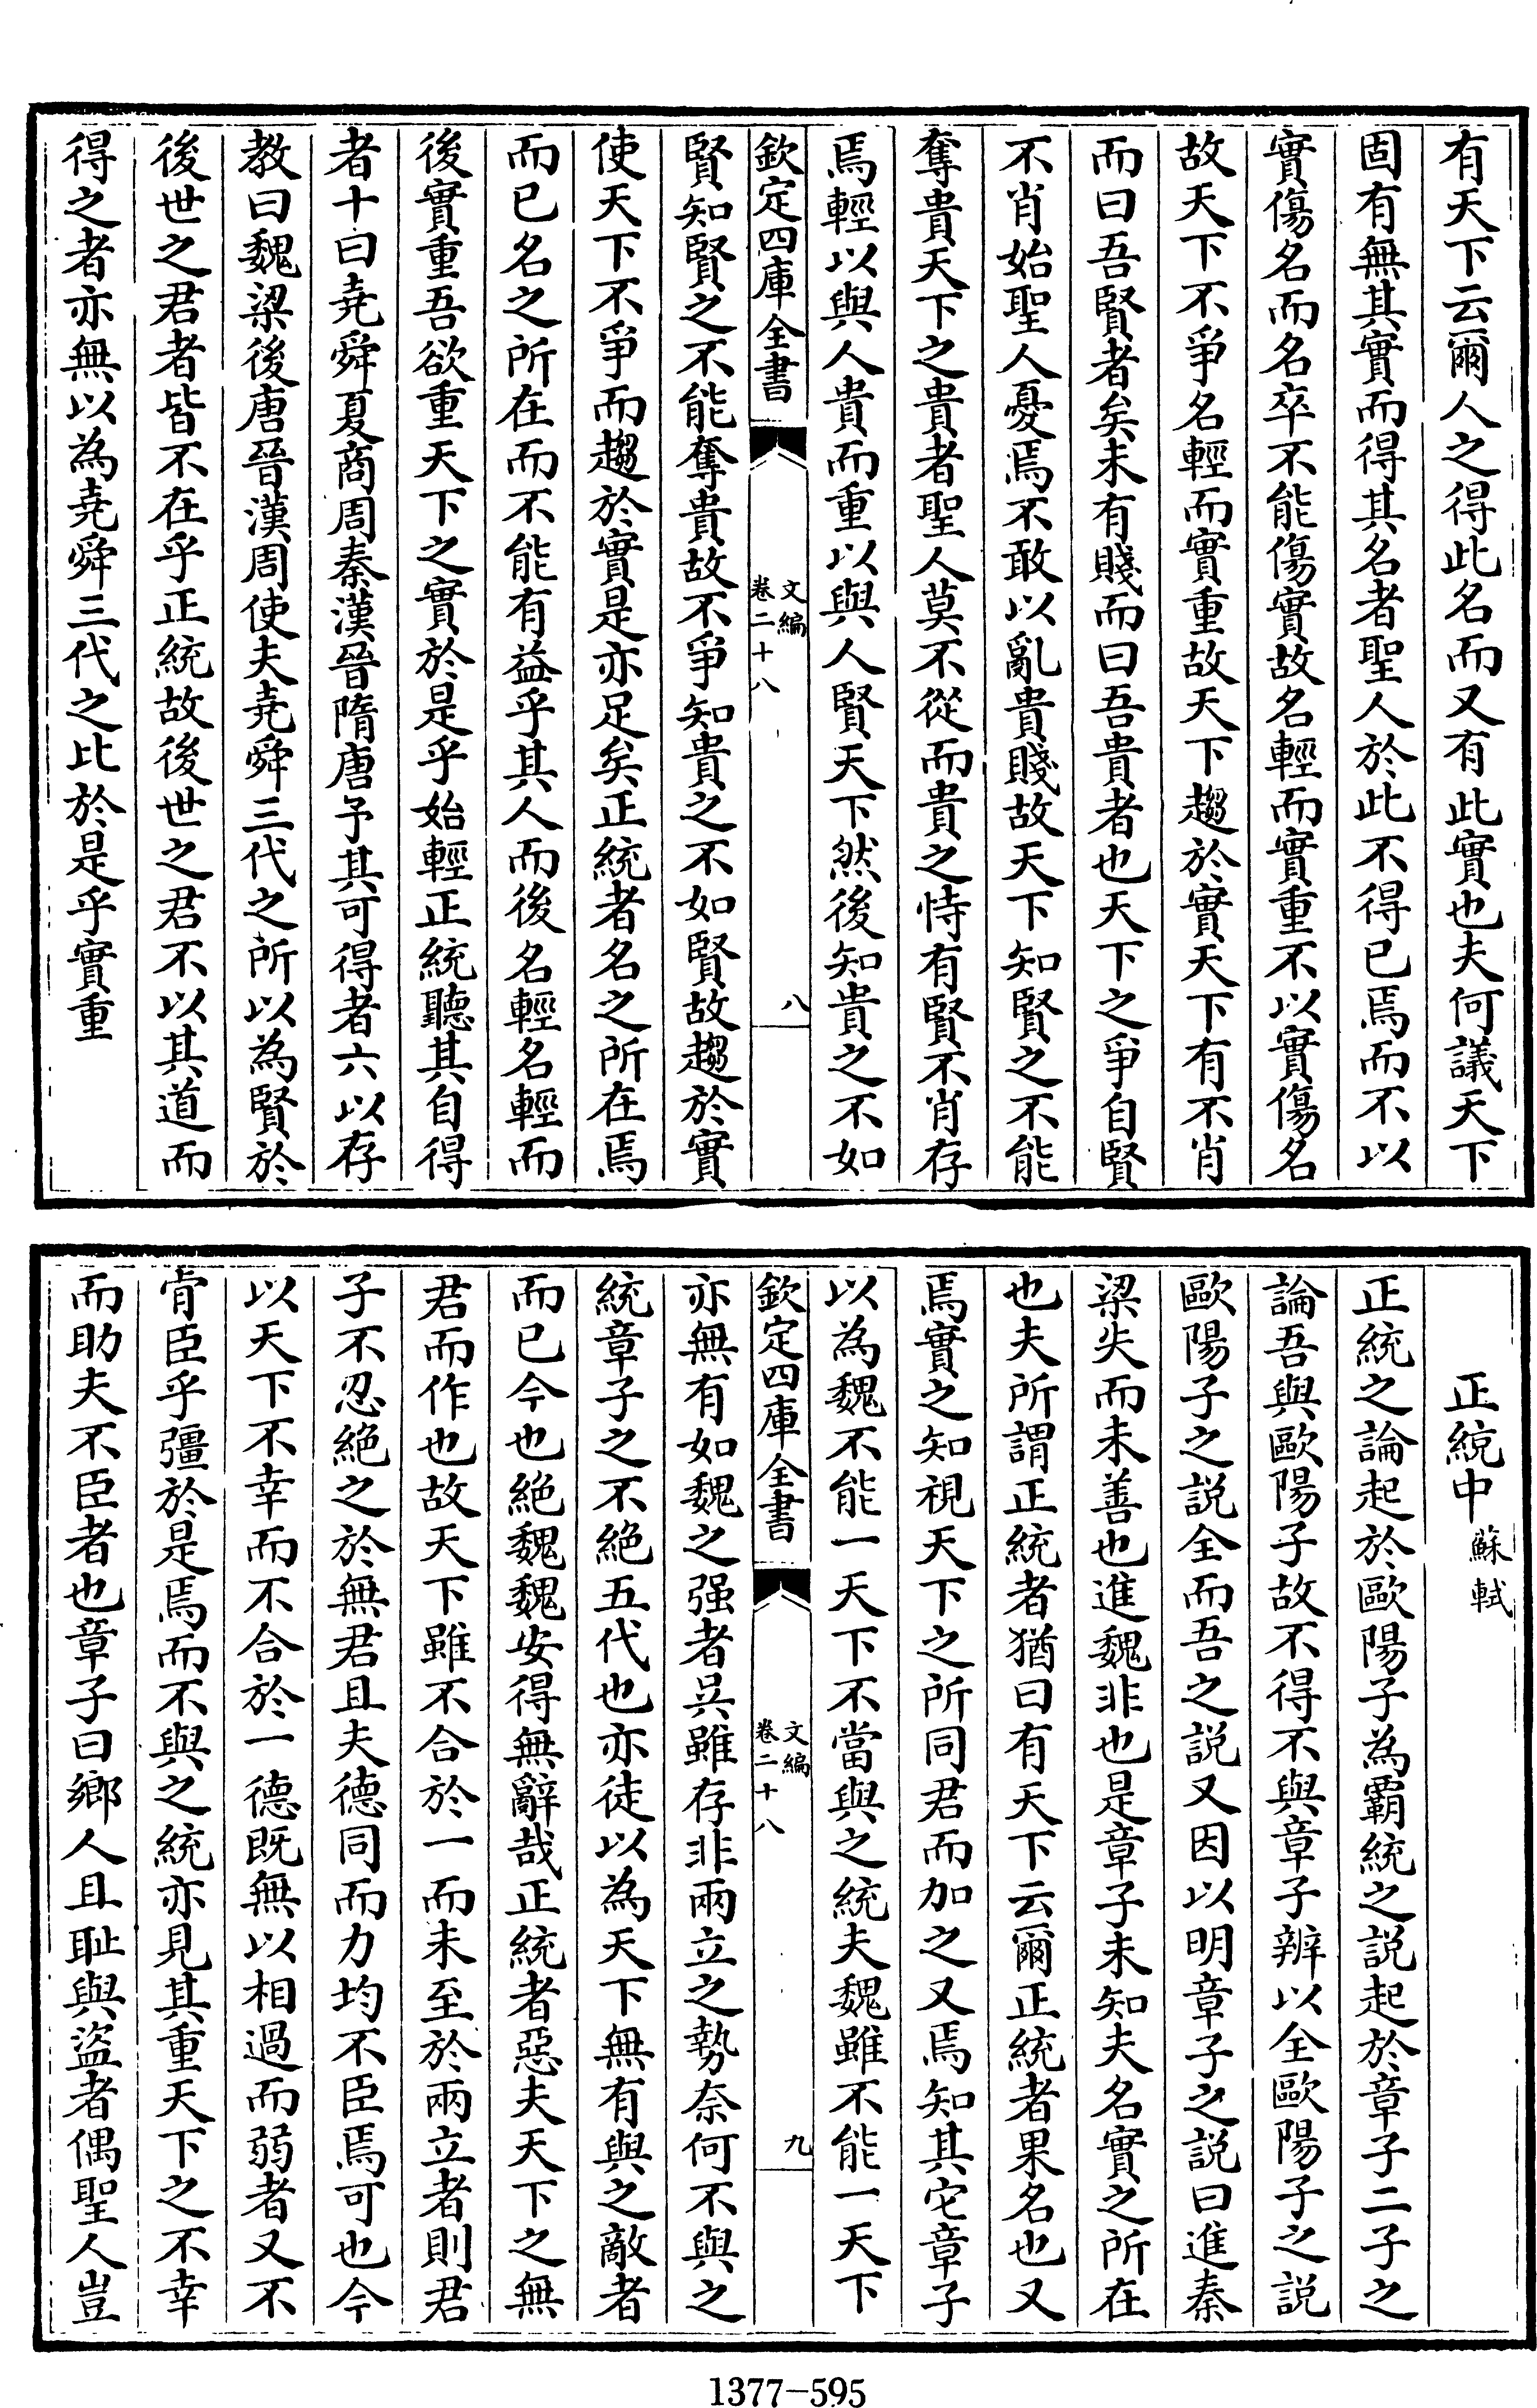 有天下云爾人之得此名而又有此實也夫何議天下
固有無其實而得其名者聖人於此不得已焉而不以
實傷名而名卒不能傷實故名輕而實重不以實傷名
故天下不爭名輕而實重故天下趨於實天下有不肖
而曰吾賢者矣未有賤而曰吾貴者也天下之爭自賢
不肖始聖人憂焉不敢以亂貴賤故天下知賢之不能
奪貴天下之貴者聖人莫不從而貴之恃有賢不肖存
焉輕以與人貴而重以與人賢天下然後知貴之不如
欽定四庫全書
文編
卷二十八
八
賢知賢之不能奪貴故不爭知貴之不如賢故趨於實
使天下不爭而趨於實是亦足矣正統者名之所在焉
而已名之所在而不能有益乎其人而後名輕名輕而
後實重吾欲重天下之實於是乎始輕正統聽其自得
者十曰堯舜夏商周秦漢晉隋唐予其可得者六以存
教曰魏梁後唐晉漢周使夫堯舜三代之所以為賢於
後世之君者皆不在乎正統故後世之君不以其道而
得之者亦無以為堯舜三代之比於是乎實重
正統中
蘇軾
正統之論起於歐陽子為霸統之説起於章子二子之
論吾與歐陽子故不得不與章子辨以全歐陽子之説
歐陽子之説全而吾之説又因以明章子之説曰進秦
梁失而未善也進魏非也是章子未知夫名實之所在
也夫所謂正統者猶曰有天下云爾正統者果名也又
焉實之知視天下之所同君而加之又焉知其它章子
以為魏不能一天下不當與之統夫魏雖不能一天下
欽定四庫全書
文編
卷二十八
九
亦無有如魏之强者吳雖存非兩立之勢奈何不與之
統章子之不絶五代也亦徒以為天下無有與之敵者
而已今也絶魏魏安得無辭哉正統者惡夫天下之無
君而作也故天下雖不合於一而未至於兩立者則君
子不忍絶之於無君且夫德同而力均不臣焉可也今
以天下不幸而不合於一德既無以相過而弱者又不
肯臣乎彊於是焉而不與之統亦見其重天下之不幸
而助夫不臣者也章子曰鄉人且耻與盜者偶聖人豈
1377-595